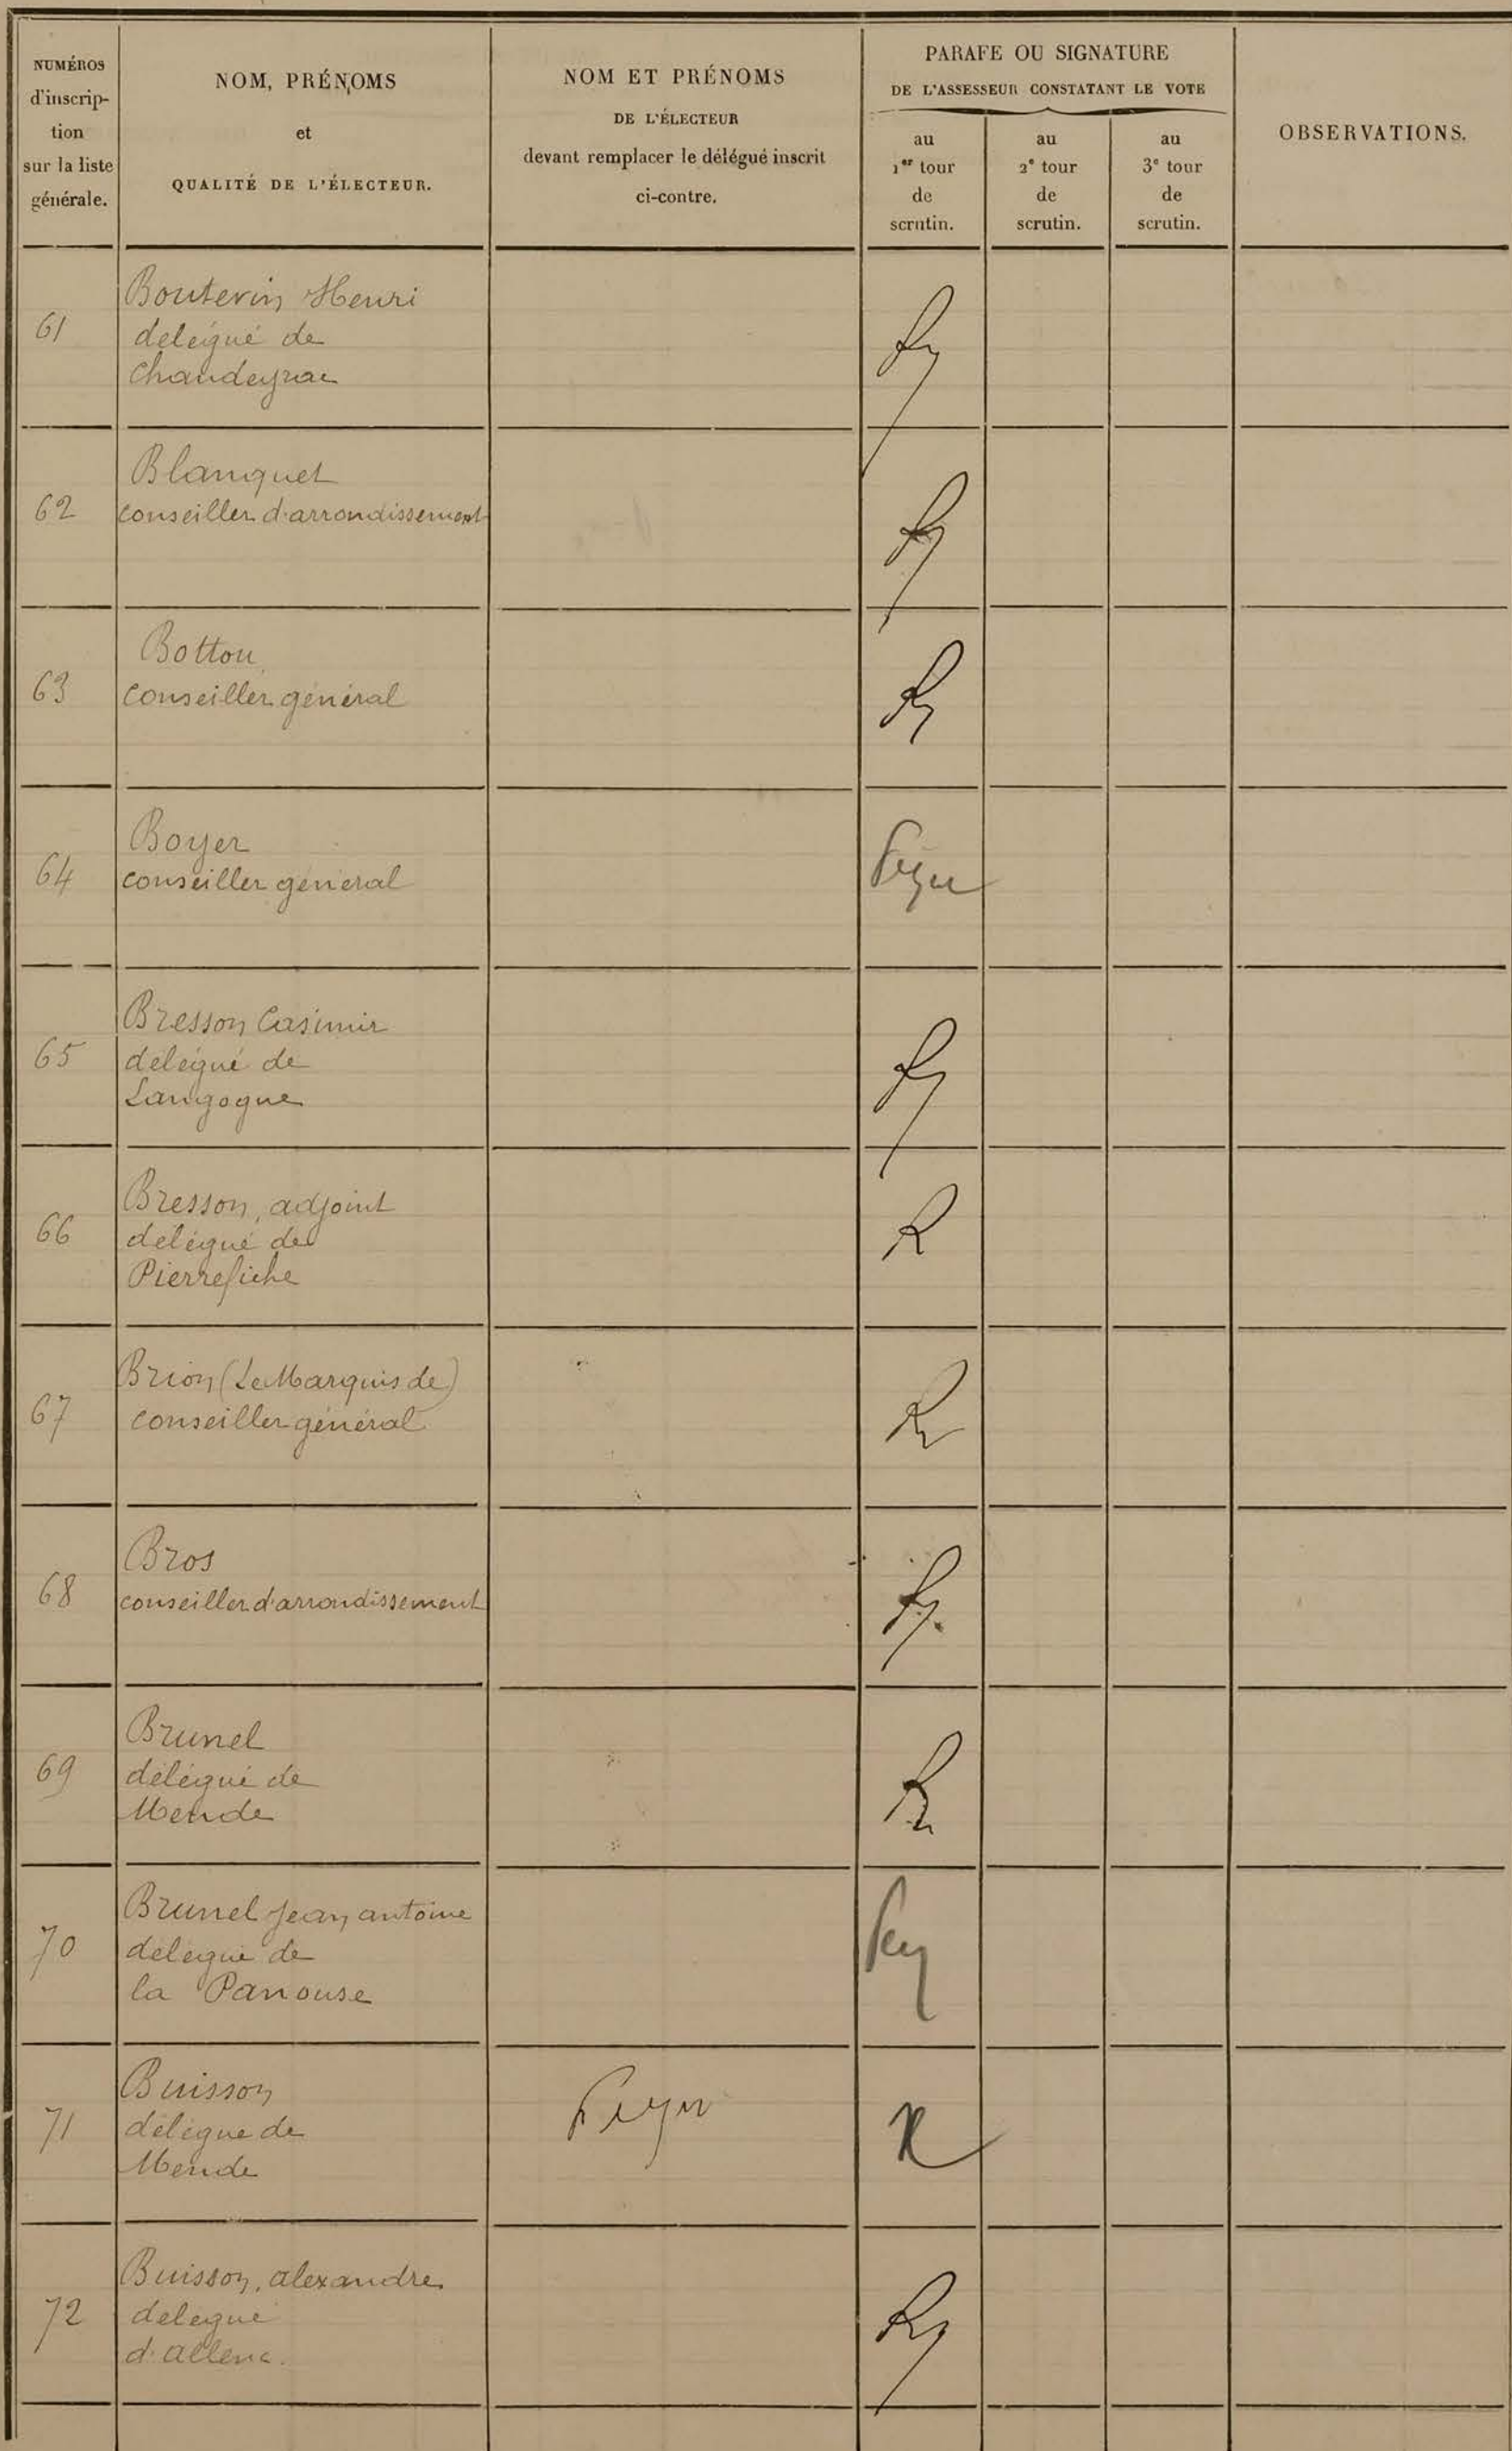 NUMÉROS
d'inscrip-
tion
sur la liste
générale.
NOM, PRÉNOMS
et
QUALITÉ DE L'ÉLECTEUR.
NOM ET PRÉNOMS
DE L'ÉLECTEUR
devant remplacer le délégué inscrit
ci-contre.
PARAFE OU SIGNATURE
DE L'ASSESSEUR CONSTATANT LE VOTE
au
1er tour
de
scrutin.
au
2e tour
de
scrutin.
au
3e tour
de
scrutin.
OBSERVATIONS.
61
Boutevin Henri
délégué de
Chaudeyrac
62
Blanquet
conseiller d'arrondissement
63
Bottou
conseiller général
64
Boyer
conseiller général
65
Bresson Casimir
délégué de
Langogne
66
Bresson, adjoint
délégué de
Pierrefiche
67
Brion (Le Marquis de)
conseiller général
68
Bros
conseiller d'arrondissement
69
Brunel
délégué de
Mende
70
Brunel Jean antoine
délégué de
la Panouse
71
Buisson
délégué de
Mende
72
Buisson, alexandre
délégué
d'allenc.